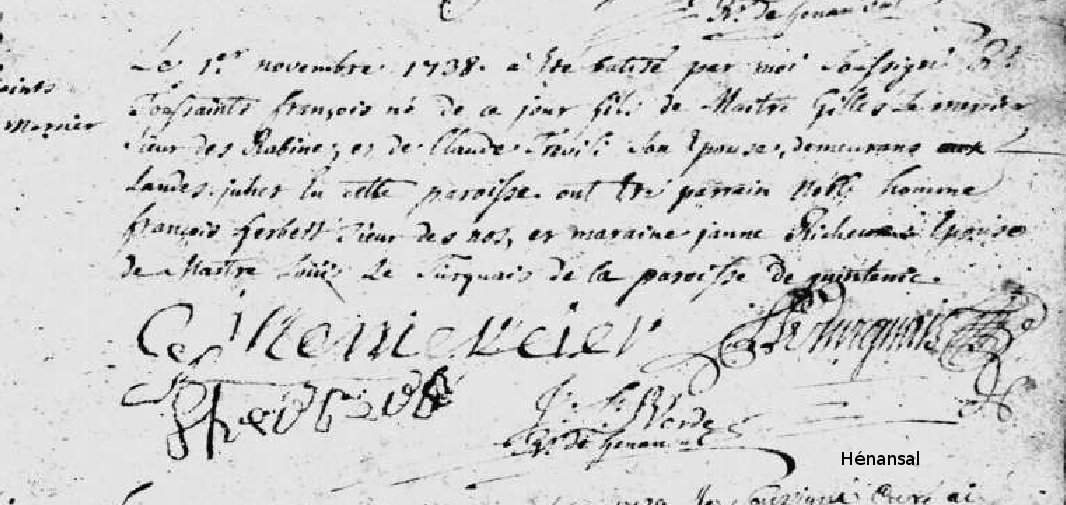 R. de henansal
Le 1er novembre 1738 a été batisé par moi Soussigné
Toussaints françois né de ce jour fils de Maitre Gilles Le mercier
Sieur des Rabines, et de Claude Son Epouse, demeurans
Landes juhel en cette paroisse. ont été parrain Noble homme
françois herbert Sieur des nos, et maraine janne Epouse
de Maitre Loüis Le Turquais de la paroisse de quintenic.
Mersier
G Le mercier
Le Turquais
R. de henansal
Hénansal
Soussigné Curé ai